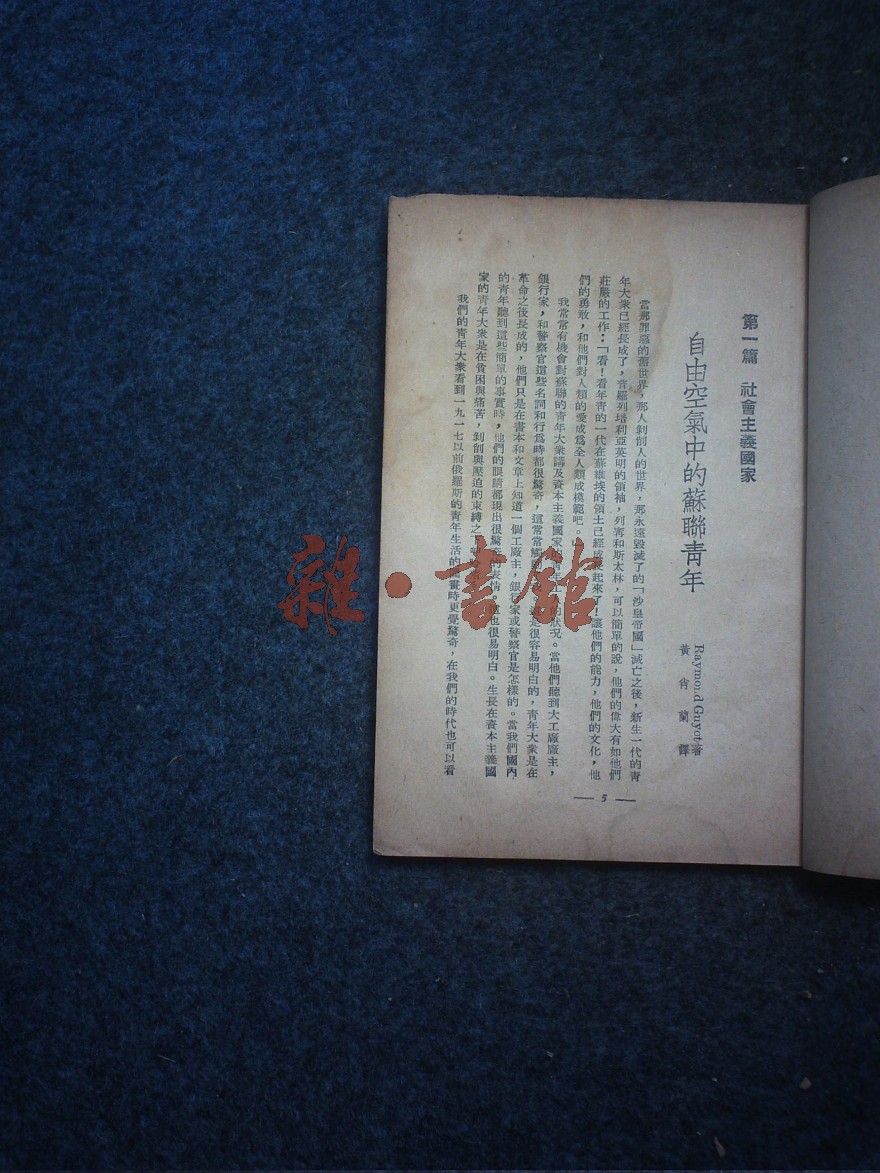 第一篇　社會主義國家
自由空氣中的蘇聯青年
Raymond Guyot著
黃肯蘭譯
當那罪惡的舊世界，那人剝削人的世界，那永遠毀滅了的「沙皇帝國」滅亡之後，新生一代的青
年大衆已經長成了，普羅列塔利亞英明的領袖，列寗和斯太林，可以簡單的說，他們的偉大有如他們
莊嚴的工作：「看！看年青的一代在蘇維埃的領土已經成長起來了！讓他們的能力，他們的文化，他
們的勇敢，和他們對人類的愛成爲全人類成模範吧。
我常常有機會對蘇聯的青年大衆講及資本主義國家的青年工的狀况。當他們聽到大工廠廠主，
銀行家，和警察官這些名詞和行爲時都很驚奇，這常常是很容易明白的，青年大衆是在
革命之後長成的，他們只是在書本和文章上知道一個工廠主，銀行家或警察官是怎樣的。當我們國內
的青年聽到這些簡單的事實時，他們的眼睛都現出很驚奇的表情，這也很易明白。生長在資本主義國
家的青年大衆是在貧困與痛苦，剝削與壓迫的束縛之下
我們的青年大衆看到一九一七以前俄羅斯的青年生活的圖畫時更覺驚奇，在我們的時代也可以看
— 5 —
雜·書館